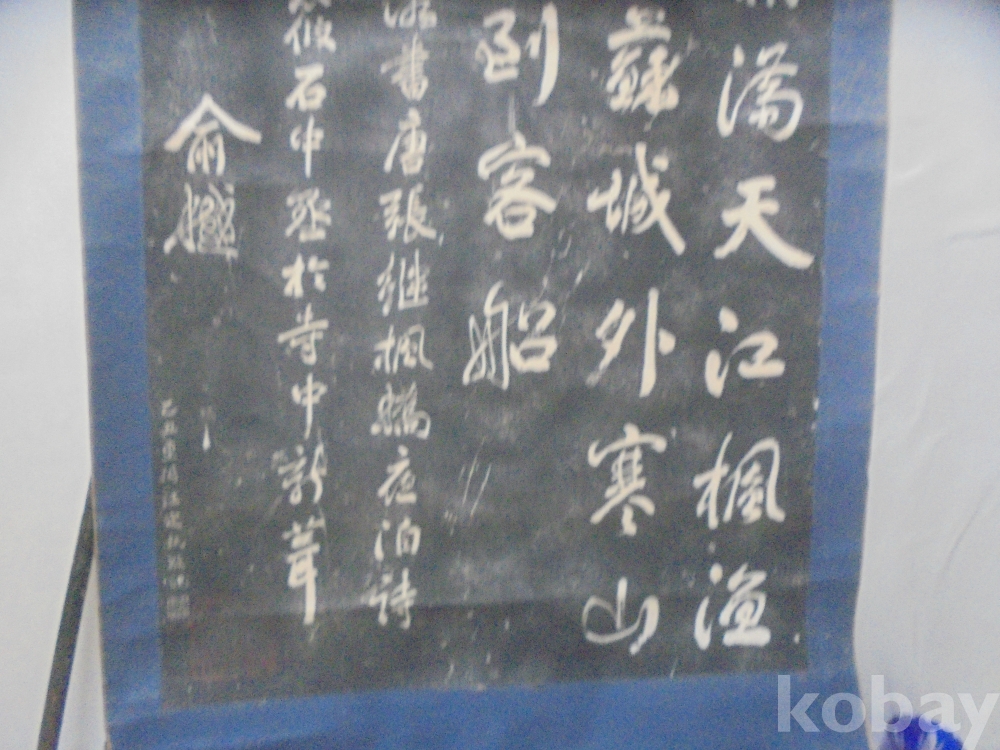 滿天江楓漁
蘇城外寒山
到客船
書唐張繼楓橋夜泊詩
筱石中丞於寺中新葺
俞樾
kobay